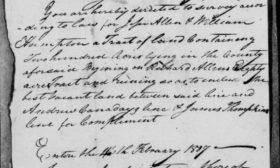 You are hereby directed to survey accor
ding to law for John Allen & William
Thompson a Tract of Land Containing
Two hundred Acres lying in the County
aforesaid Begining on Richard Allens Eighty
acre tract and runing so as to include the
best vacant land between said line and
Andrew Canadays line & James Thompsons
line for Compliment
Enter the 14th February 1807